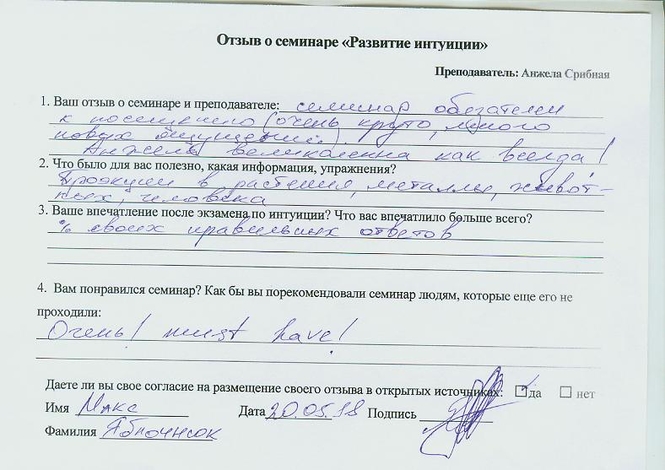 Отзыв о семинаре «Развитие интуиции»
Преподаватель: Анжела Срибная
1. Ваш отзыв о семинаре и преподавателе: семинар обязателен
к посещению (очень круто, много
новых ощущений).
Анжела великолепна как всегда!
2. Что было для вас полезно, какая информация, упражнения?
Проэкции в растения, металлы, живот-
ных, человека
3. Ваше впечатление после экзамена по интуиции? Что вас впечатлило больше всего?
% своих правильных ответов
4. Вам понравился семинар? Как бы вы порекомендовали семинар людям, которые еще его не
проходили:
Очень! must have!
Даете ли вы свое согласие на размещение своего отзыва в открытых источниках: да нет
Имя Макс Дата 20.05.18 Подпись
Фамилия Яблочнюк